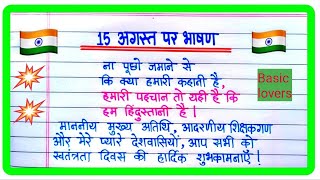 15 अगस्त पर भाषण
ना पूछो जमाने से
कि क्या हमारी कहानी है,
हमारी पहचान तो यही है कि
हम हिंदुस्तानी है।
Basic
lovers
माननीय मुख्य अतिथि, आदरणीय शिक्षकगण
और मेरे प्यारे देशवासियों, आप सभी को
स्वतंत्रता दिवस की हार्दिक शुभकामनाएँ!